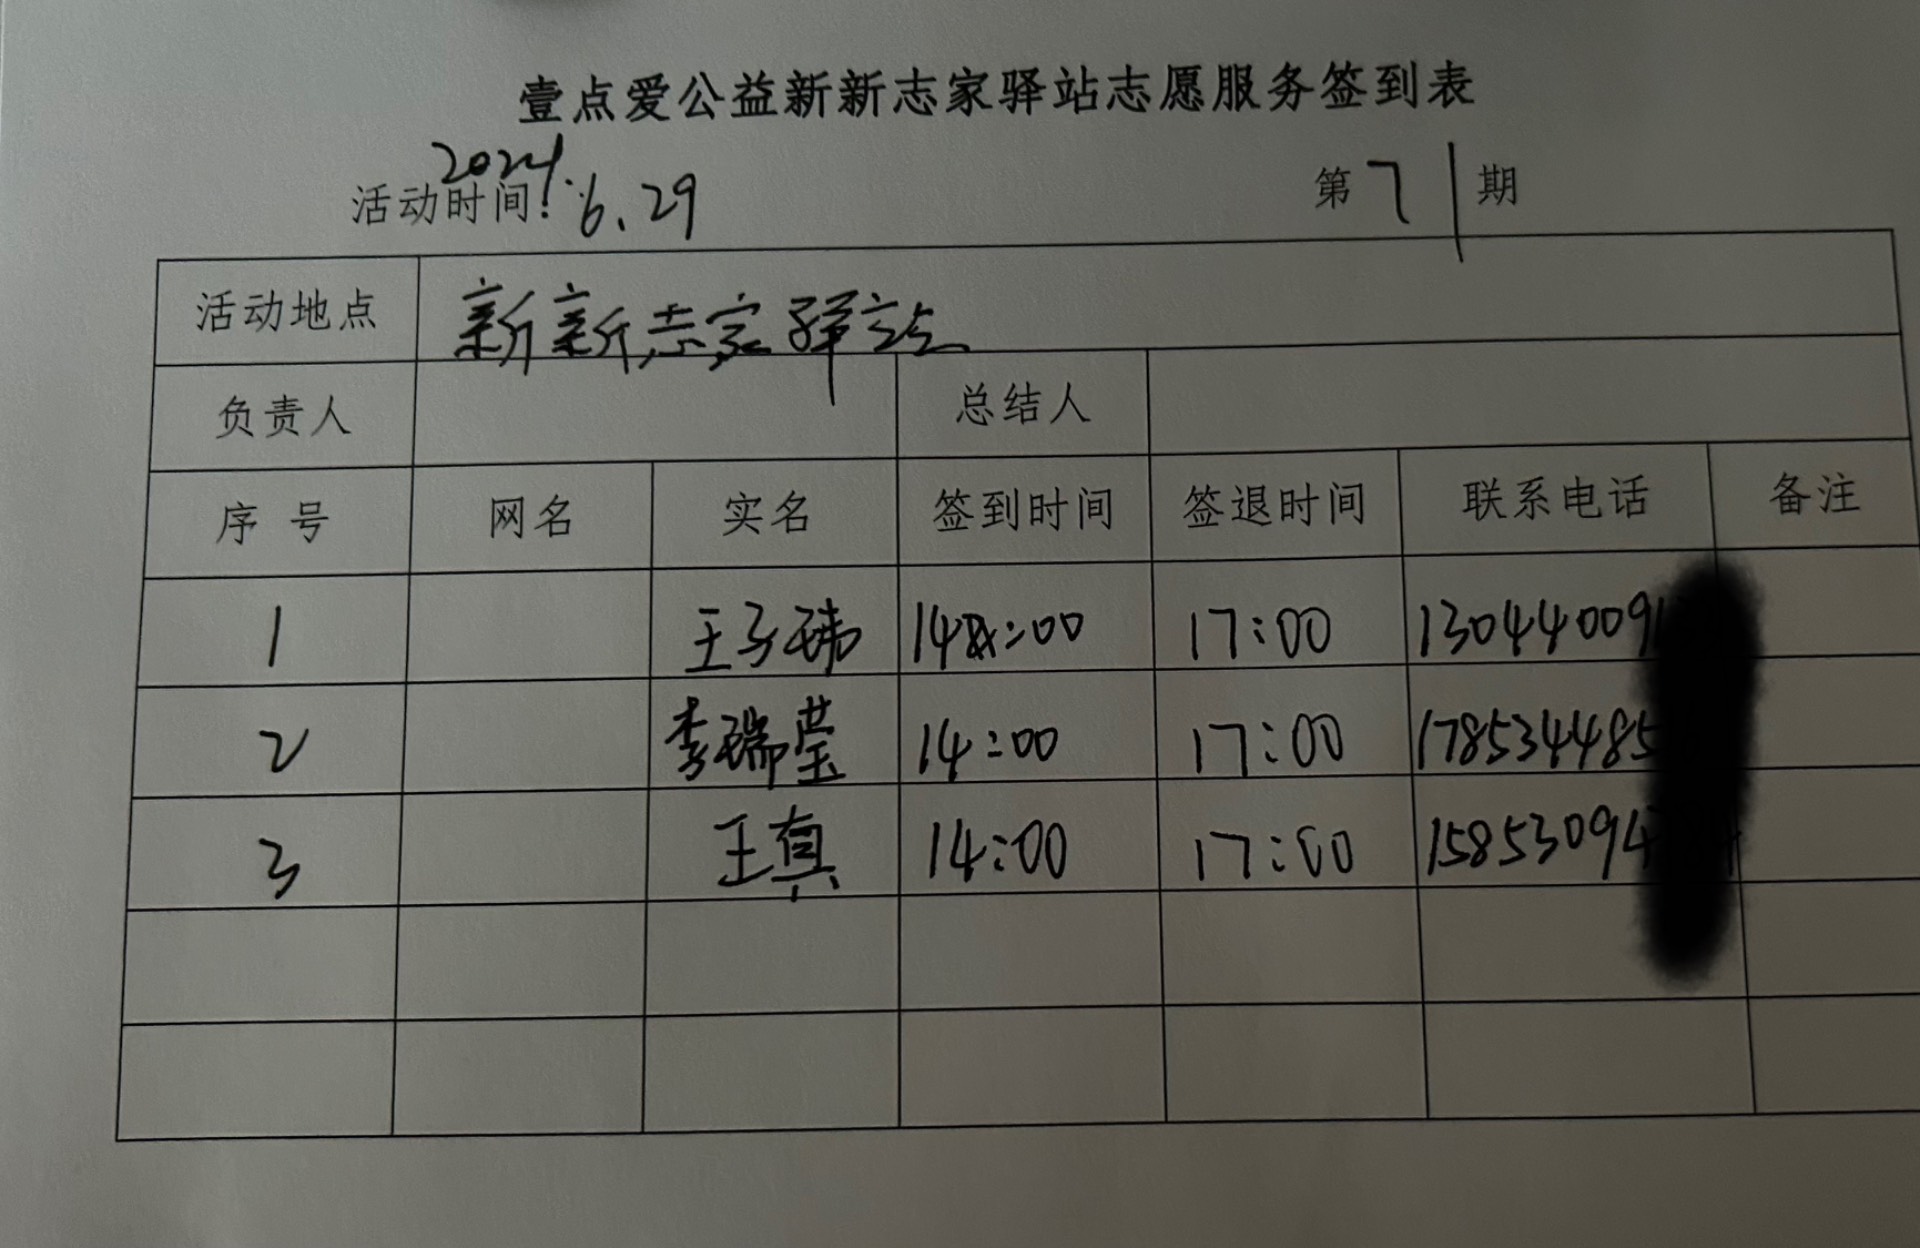 壹点爱公益新新志家驿站志愿服务签到表
活动时间: 2024.6.29 第71期
活动地点 新新志家驿站
负责人 总结人
序号 网名 实名 签到时间 签退时间 联系电话 备注
1 王子玮 14:00 17:00 130440091
2 李瑞莹 14:00 17:00 178534485
3 王真 14:00 17:00 15853094